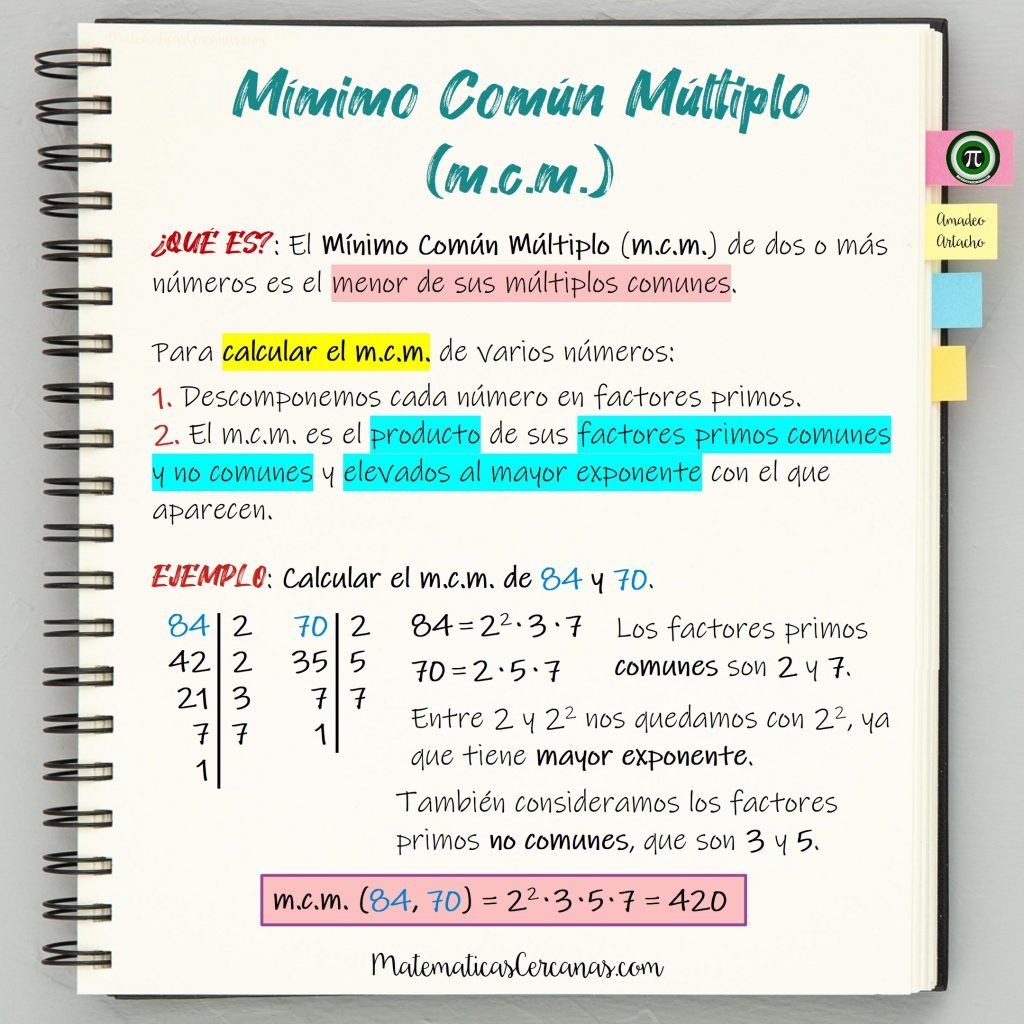 MatematicasCercanas.com
Mímimo Común Múltiplo
(m.c.m.)
π
Amadeo
Artacho
¿QUÉ ES?: El Mínimo Común Múltiplo (m.c.m.) de dos o más
números es el menor de sus múltiplos comunes.
Para calcular el m.c.m. de varios números:
1. Descomponemos cada número en factores primos.
2. El m.c.m. es el producto de sus factores primos comunes
y no comunes y elevados al mayor exponente con el que
aparecen.
EJEMPLO: Calcular el m.c.m. de 84 y 70.
84 | 2
42 | 2
21 | 3
7 | 7
1 |
70 | 2
35 | 5
7 | 7
1 |
84 = 2²·3·7
70 = 2·5·7
Los factores primos
comunes son 2 y 7.
Entre 2 y 2² nos quedamos con 2², ya
que tiene mayor exponente.
También consideramos los factores
primos no comunes, que son 3 y 5.
m.c.m. (84, 70) = 2²·3·5·7 = 420
MatematicasCercanas.com